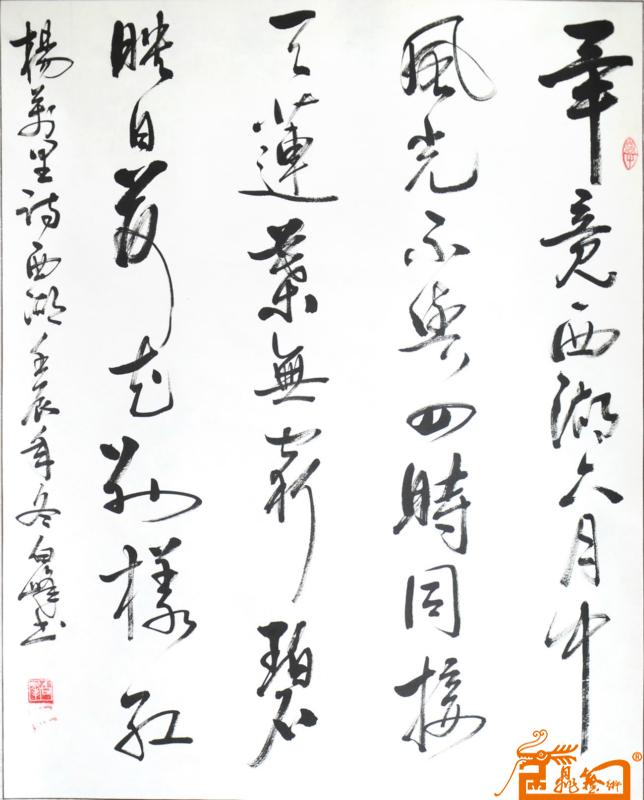 畢竟西湖六月中
風光不與四時同接
天蓮葉無窮碧
映日荷花別樣紅
楊萬里詩西湖壬辰年冬白書